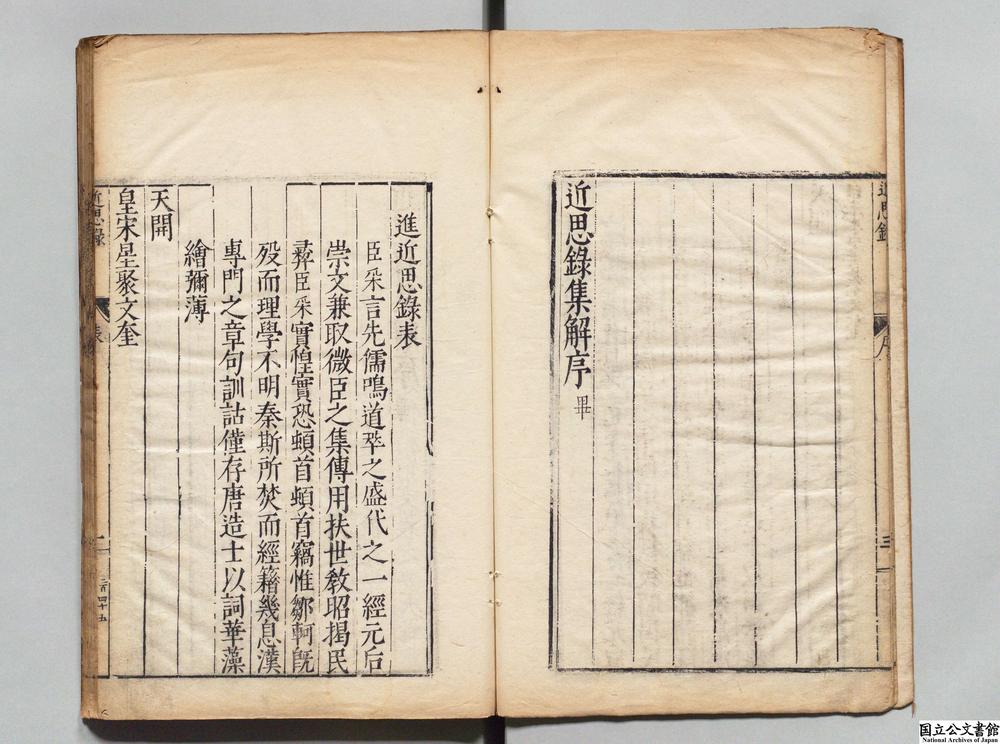 近思錄
序
三
近思錄集解序 畢
進近思錄表
臣采言先儒鳴道萃之盛代之一經元后
崇文兼取微臣之集傳用扶世敎昭揭民
彛臣采實惶實恐頓首頓首竊惟鄒軻旣
歿而理學不明秦斯所焚而經籍幾息漢
專門之章句訓詁僅存唐造士以詞華藻
繪彌薄
天開
皇宋星聚文奎
近思錄
表
一
三百四十五
国立公文書館
National Archives of Japan